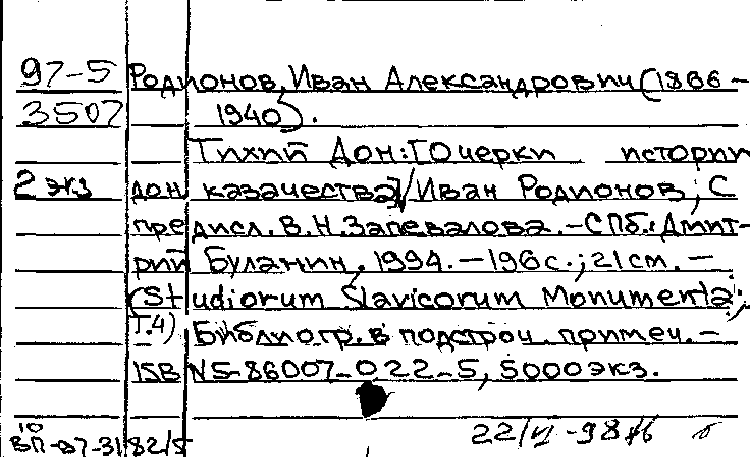 97-5 Родионов, Иван Александрович (1866-
3507 1940).
Тихий Дон: [Очерки истории
2 экз дон. казачества] / Иван Родионов; С
предисл. В. Н. Запевалова. - СПб.: Дмит-
рий Буланин, 1994. - 196 с.; 21 см. -
(Studiorum Slavicorum Monumenta;
Т.4) Библиогр. в подстроч. примеч. -
ISBN 5-86007-022-5, 5000 экз.
10
ВП-97-3182/5 22/VI-98